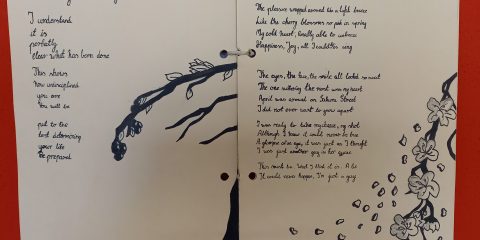 I understand
it is
perfectly
clear what has been done
This shows
how undisciplined
you are
You will be
put to the
test determining
your life
Be prepared
The pleasure wrapped around its a light breeze
Like the cherry blossoms so pink in spring
My cold heart, finally able to
Happiness, Joy, all I could sing
The eyes, the the smile all looked so sweet
The one suffering the most was my heart
April was around on Future Street
I did not ever want to grow apart
I was ready to take my chance, my shot
Although I knew it could never be true
A glimpse else eye, it was just as I thought
I was just another guy in her
This must be. that I liked it in. A lie
It could never happen, I'm just a guy